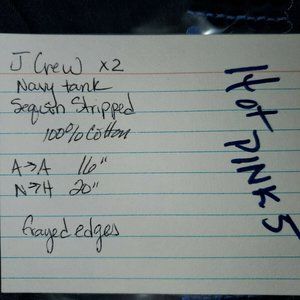 J Crew x2
Navy tank
Sequin Stripped
100% Cotton
A→A 16"
N→H 20"
frayed edges
Hot PINK 5